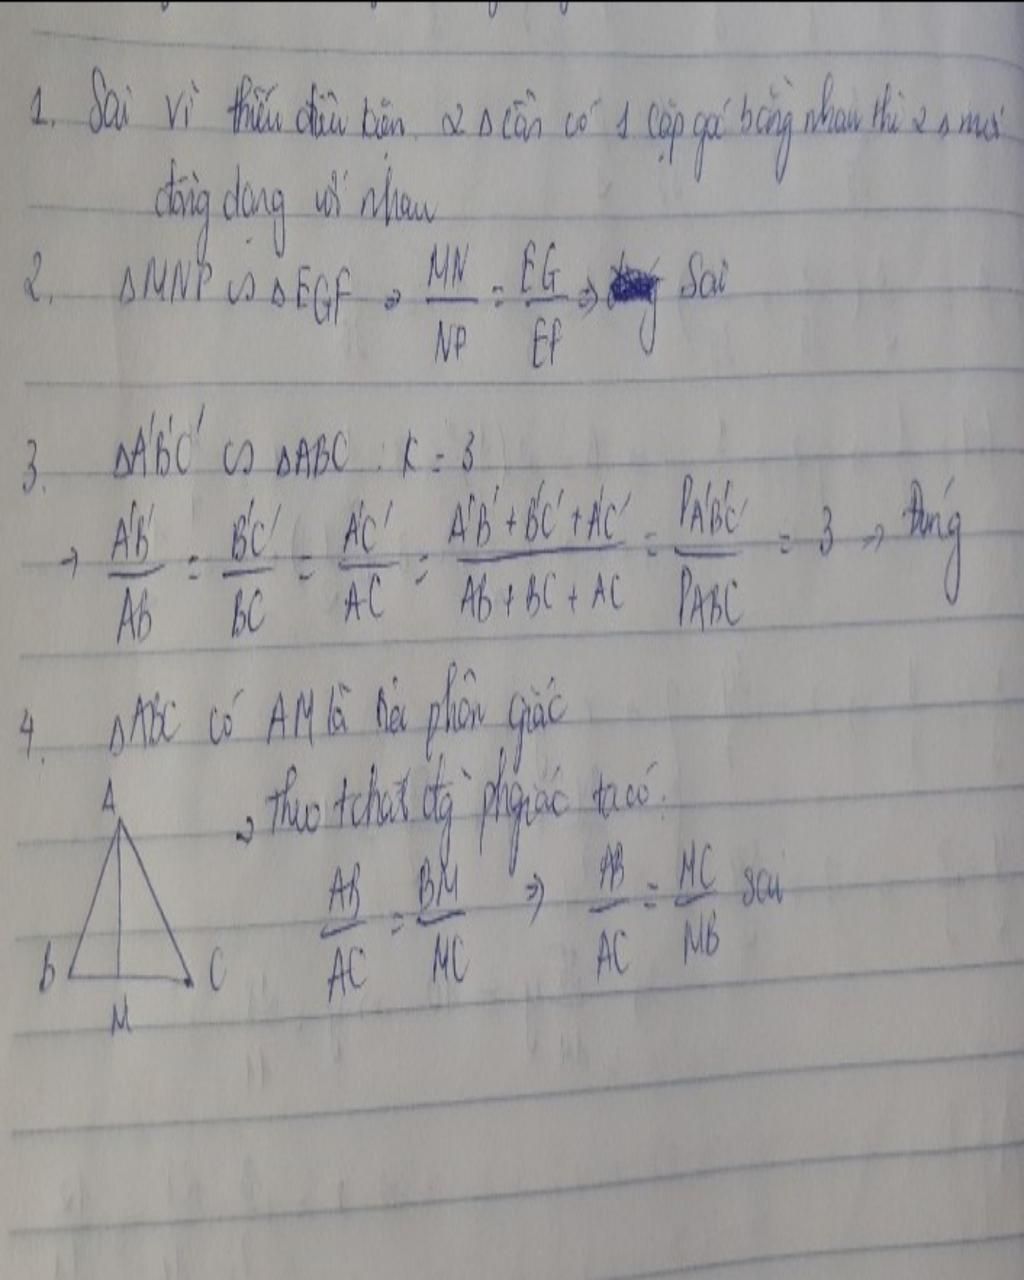 1. Sai vì thiếu điều kiện. 2 Δ cần có 1 cặp góc bằng nhau thì 2 Δ mới
đồng dạng với nhau
2. ΔMNP ∽ ΔEGF ⇒ MN/NP = EG/EF ⇒ Sai
3. ΔA'B'C' ∽ ΔABC : K = 3
→ A'B'/AB = B'C'/BC = A'C'/AC = A'B' + B'C' + A'C'/AB + BC + AC = PA'B'C'/PABC = 3 → Đúng
4. ΔABC có AM là tia phân giác
A
→ Theo tchất đg phgiác ta có:
AB/AC = BM/MC ⇒ AB/AC = MC/MB sai
B C
M